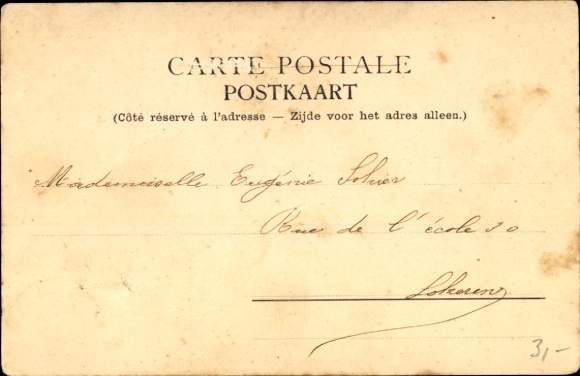 CARTE POSTALE
POSTKAART
(Côté réservé à l'adresse — Zijde voor het adres alleen.)
Mademoiselle Eugénie Sohier
Rue de l'école 30
Lokeren
3,-